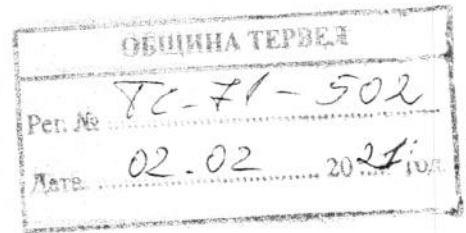 ОБЩИНА ТЕРВЕЛ
Рег. № ТС-71-502
Дата 02.02 2021 год.